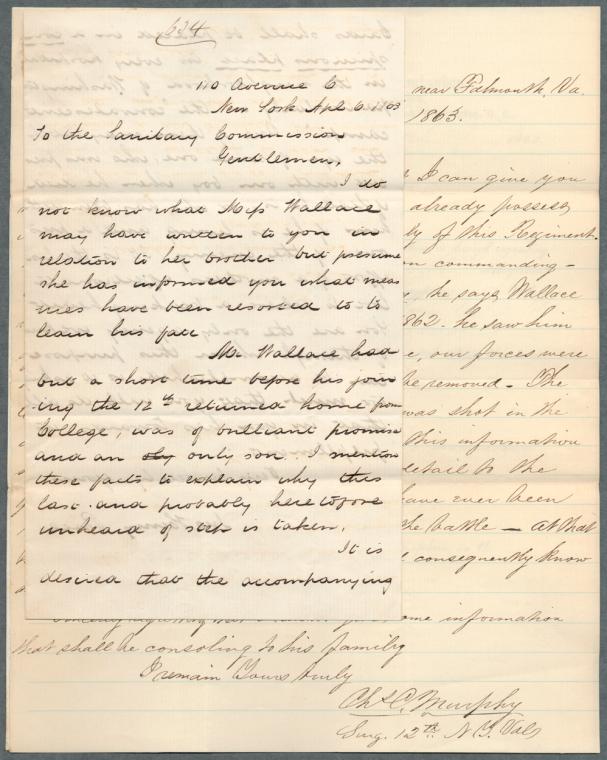 634
110 Avenue C
New York Apl 6 1863
To the Sanitary Commission
Gentlemen,
I do
not know what Miss Wallace
may have written to you in
relation to her brother but presume
she has informed you what meas
ures have been resorted to to
learn his fate
Mr Wallace had
but a short time before his join
ing the 12th returned home from
College, was of brilliant promise
and an only son. I mention
these facts to explain why this
last and probably heretofore
unheard of step is taken.
It is
desired that the accompanying
near Falmouth, Va.
1863.
I can give you
already possess
of this Regiment
commanding -
he says Wallace
1862. he saw him
, our forces were
be removed - The
was shot in the
this information
detail to the
have ever been
the battle - at that
consequently know
some information
that shall be consoling to his family
I remain Yours truly
Chs C. Murphy
Surg. 12th N.Y. Vols